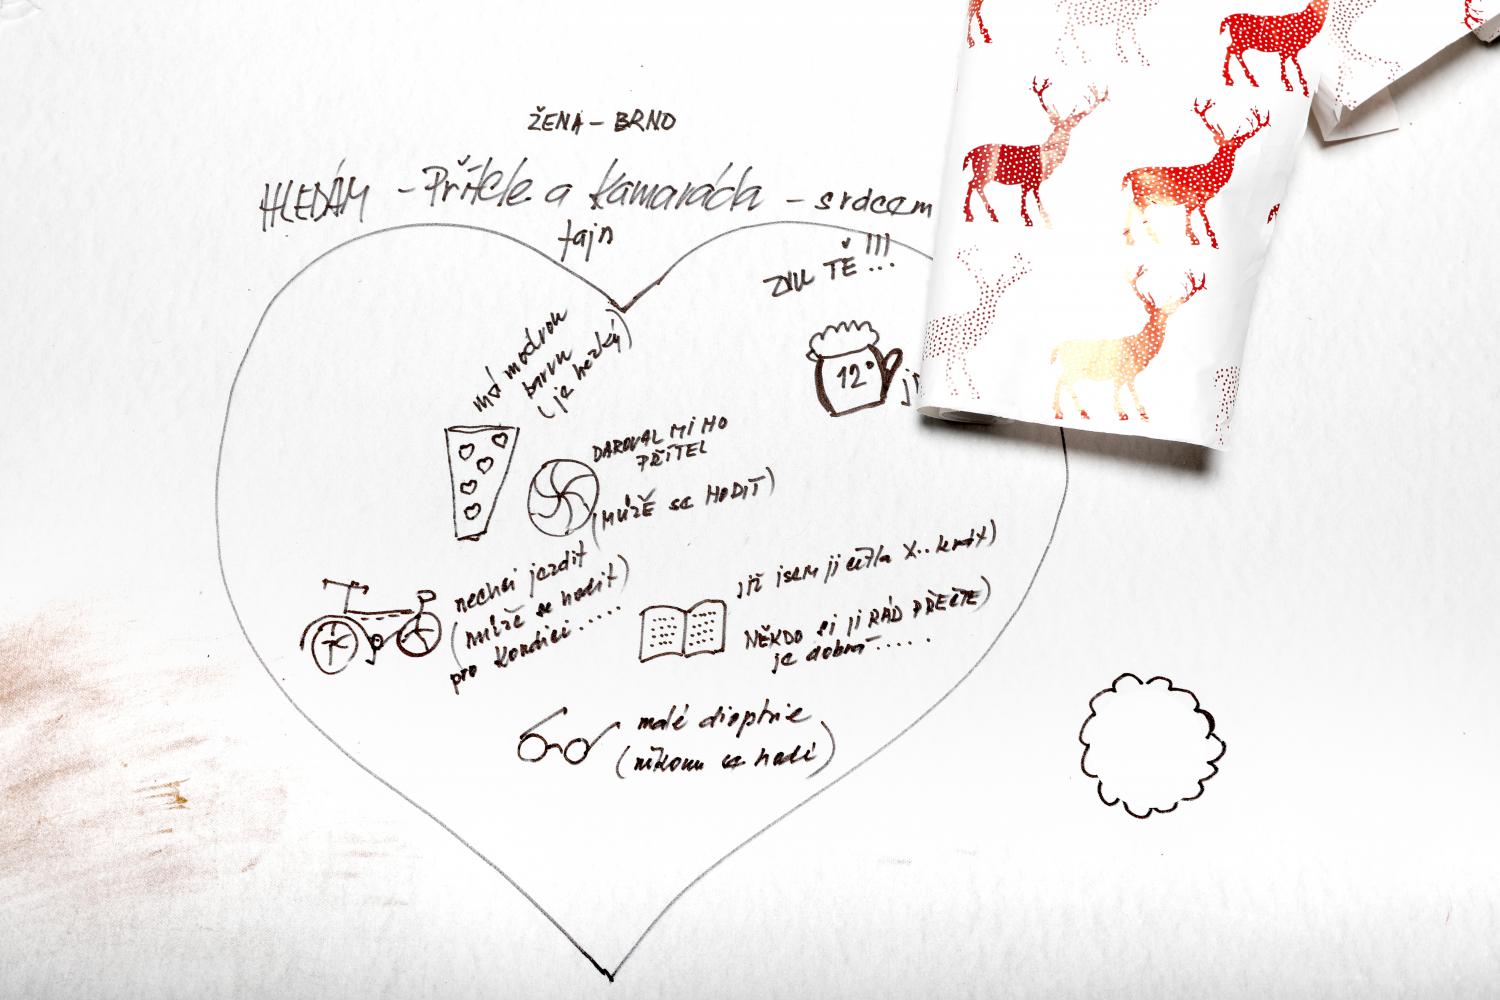 ŽENA - BRNO
HLEDÁM - Přítele a kamaráda - srdcem
tajn
ZVU TĚ !!!
12°
má modrou
barvu
(je hezký)
DAROVAL MI HO
PŘÍTEL
(MŮŽE SE HODIT)
nechci jezdit
(může se hodit)
pro kondici.....
již jsem ji četla X.. krát)
NĚKDO SI JI RÁD PŘEČTE)
je dobrá.....
malé dioptrie
(někomu se hodí)